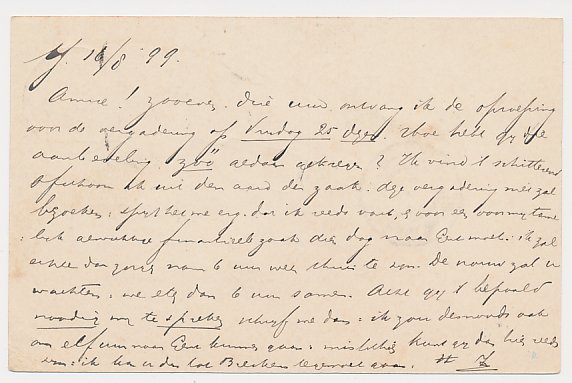 16/8 '99.
Amice! Zooeven, drie uur, ontvang ik de oproeping
voor de vergadering op Vrijdag 25 dezer. Hoe hebt gij die
aanbeveling zóó gedaan gekregen? Ik vind 't schitterend
ofschoon ik uit den aard der zaak deze vergadering niet zal
bezoeken: spijt het me erg, dat ik reeds vast, voor een voor mij
gewichtige financieele zaak dien dag naar moet. Ik zal
echter dan zorgen om 6 uur weer thuis te zijn. De zal u
wachten: we eten dan 6 uur samen. Acht gij 't bepaald
noodig mij te spreken schrijf me dan: ik zou desnoods ook
om elf uur naar kunnen gaan: misschien kunt gij dan hier reeds
zijn: ik kan u dan tot Breskens tegemoet gaan.